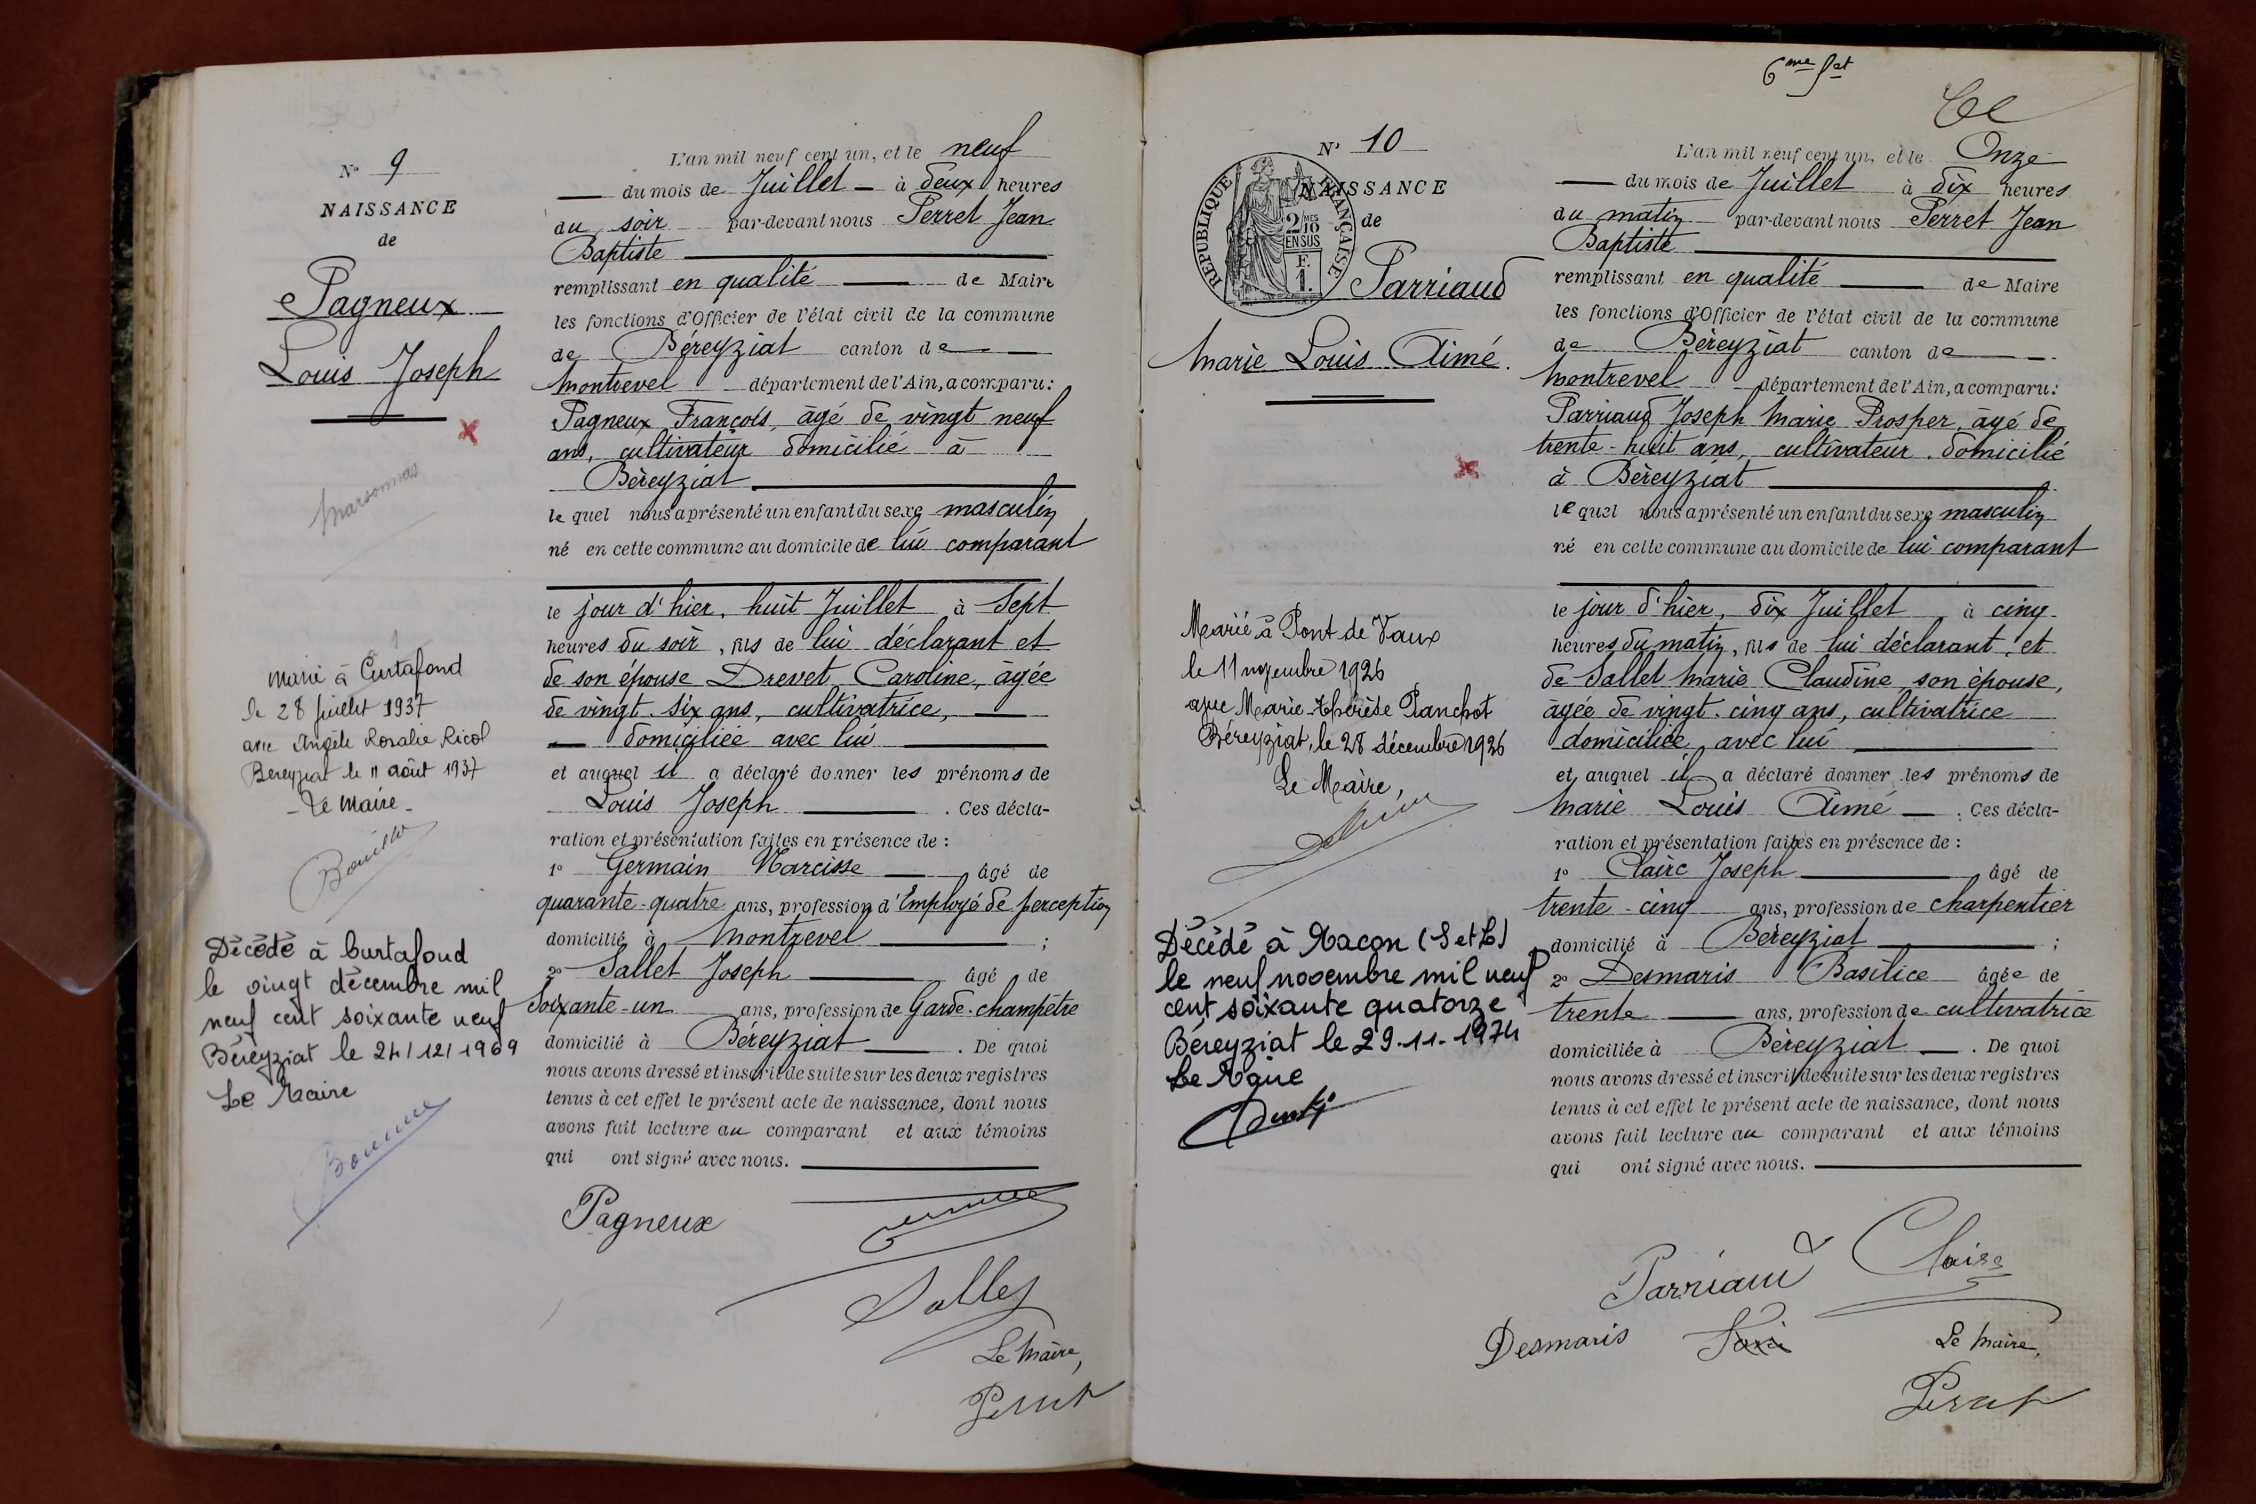 N° 9
NAISSANCE
de
Pagneux
Louis Joseph
Marsonnas
Marié à Curtafond
le 28 juillet 1937
avec Angèle Rosalie Ricol
Bereyziat le 11 août 1937
- Le Maire -
Décédé à Curtafond
le vingt décembre mil
neuf cent soixante neuf
Béreyziat le 24/12/1969
Le Maire
L'an mil neuf cent un, et le neuf
du mois de Juillet - à deux heures
du soir par-devant nous Perret Jean
Baptiste
remplissant en qualité de Maire
les fonctions d'Officier de l'état civil de la commune
de Béreyziat canton de
Montrevel département de l'Ain, a comparu:
Pagneux François, âgé de vingt neuf
ans, cultivateur domicilié à
Béreyziat
le quel nous a présenté un enfant du sexe masculin
né en cette commune au domicile de lui comparant
le jour d'hier, huit Juillet à Sept
heures du soir, fils de lui déclarant et
de son épouse Drevet Caroline, âgée
de vingt-six ans, cultivatrice,
domiciliée avec lui
et auquel il a déclaré donner les prénoms de
Louis Joseph . Ces décla-
ration et présentation faites en présence de :
1° Germain Narcisse âgé de
quarante-quatre ans, profession d'Employé de perception
domicilié à Montrevel ;
2° Sallet Joseph âgé de
Soixante-un ans, profession de Garde-champêtre
domicilié à Béreyziat . De quoi
nous avons dressé et inscrit de suite sur les deux registres
tenus à cet effet le présent acte de naissance, dont nous
avons fait lecture au comparant et aux témoins
qui ont signé avec nous.
Pagneux
Sallet
Le Maire,
Perret
6me fet
N° 10
NAISSANCE
de
RÉPUBLIQUE FRANÇAISE
2/10 MES
EN SUS
F.
1.
Parriaud
Marie Louis Aimé.
Marié à Pont de Vaux
le 11 novembre 1926
avec Marie-Thérèse Planchot
Béreyziat, le 28 décembre 1926
Le Maire,
Décédé à Macon (S et L)
le neuf novembre mil neuf
cent soixante quatorze
Béreyziat le 29-11-1974
Le Maire
L'an mil neuf cent un, et le Onze
du mois de Juillet à dix heures
du matin par-devant nous Perret Jean
Baptiste
remplissant en qualité de Maire
les fonctions d'Officier de l'état civil de la commune
de Béreyziat canton de
Montrevel département de l'Ain, a comparu:
Parriaud Joseph Marie Prosper, âgé de
trente-huit ans, cultivateur, domicilié
à Béreyziat
le quel nous a présenté un enfant du sexe masculin
né en cette commune au domicile de lui comparant
le jour d'hier, dix Juillet, à cinq
heures du matin, fils de lui déclarant, et
de Sallet Marie Claudine, son épouse,
âgée de vingt-cinq ans, cultivatrice
domiciliée avec lui
et auquel il a déclaré donner les prénoms de
Marie Louis Aimé . Ces décla-
ration et présentation faites en présence de :
1° Claire Joseph âgé de
trente-cinq ans, profession de charpentier
domicilié à Béreyziat ;
2° Desmaris Basilice âgée de
trente ans, profession de cultivatrice
domiciliée à Béreyziat . De quoi
nous avons dressé et inscrit de suite sur les deux registres
tenus à cet effet le présent acte de naissance, dont nous
avons fait lecture au comparant et aux témoins
qui ont signé avec nous.
Parriaud Claire
Desmaris
Le Maire,
Perret